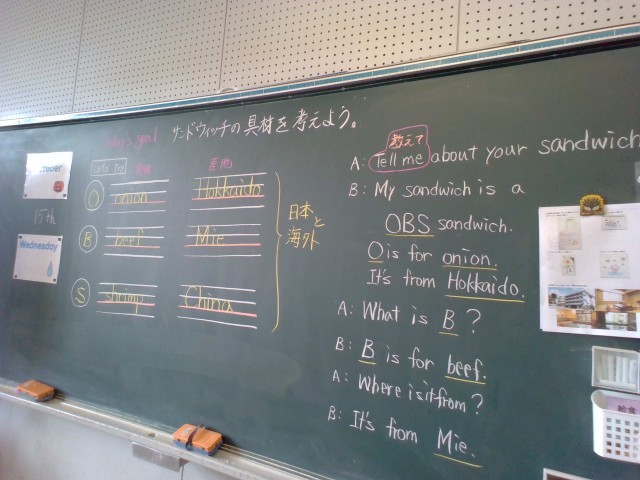 Today's goal サンドウィッチの具材を考えよう。
October
15th
Wednesday
Let's Try
産地
O onion Hokkaido
B beef Mie
S shrimp China
日本と
海外
教えて
A: Tell me about your sandwich
B: My sandwich is a
OBS sandwich.
O is for onion.
It's from Hokkaido.
A: What is B?
B: B is for beef.
A: Where is it from?
B: It's from Mie.
給食